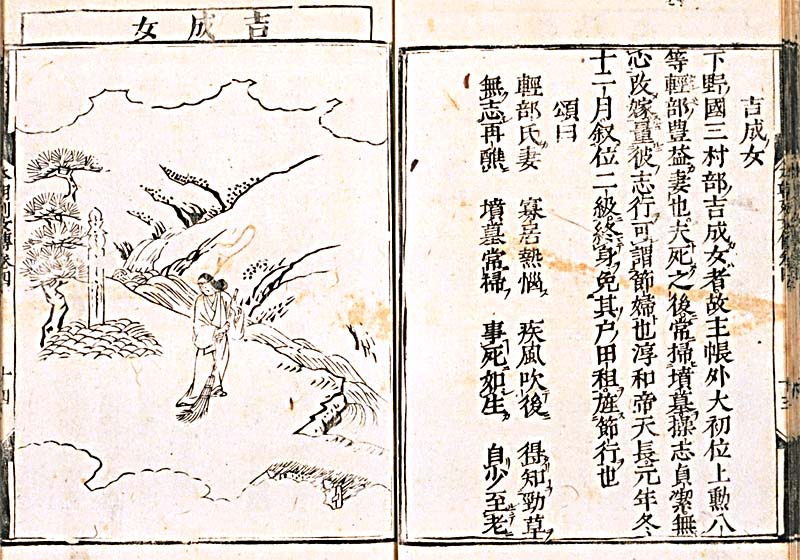 吉成女
下野國三村部吉成女者故主帳外大初位上勲八
等輕部豊益妻也夫死之後常掃墳墓操志貞潔無
心改嫁量彼志行可謂節婦也淳和帝天長元年冬
十二月叙位二級終身免其户田租旌節行也
頌曰
輕部氏妻 寡居熱惱 疾風吹後 得知勁草
無志再醮 墳墓常掃 事死如生 自少至老
吉成女